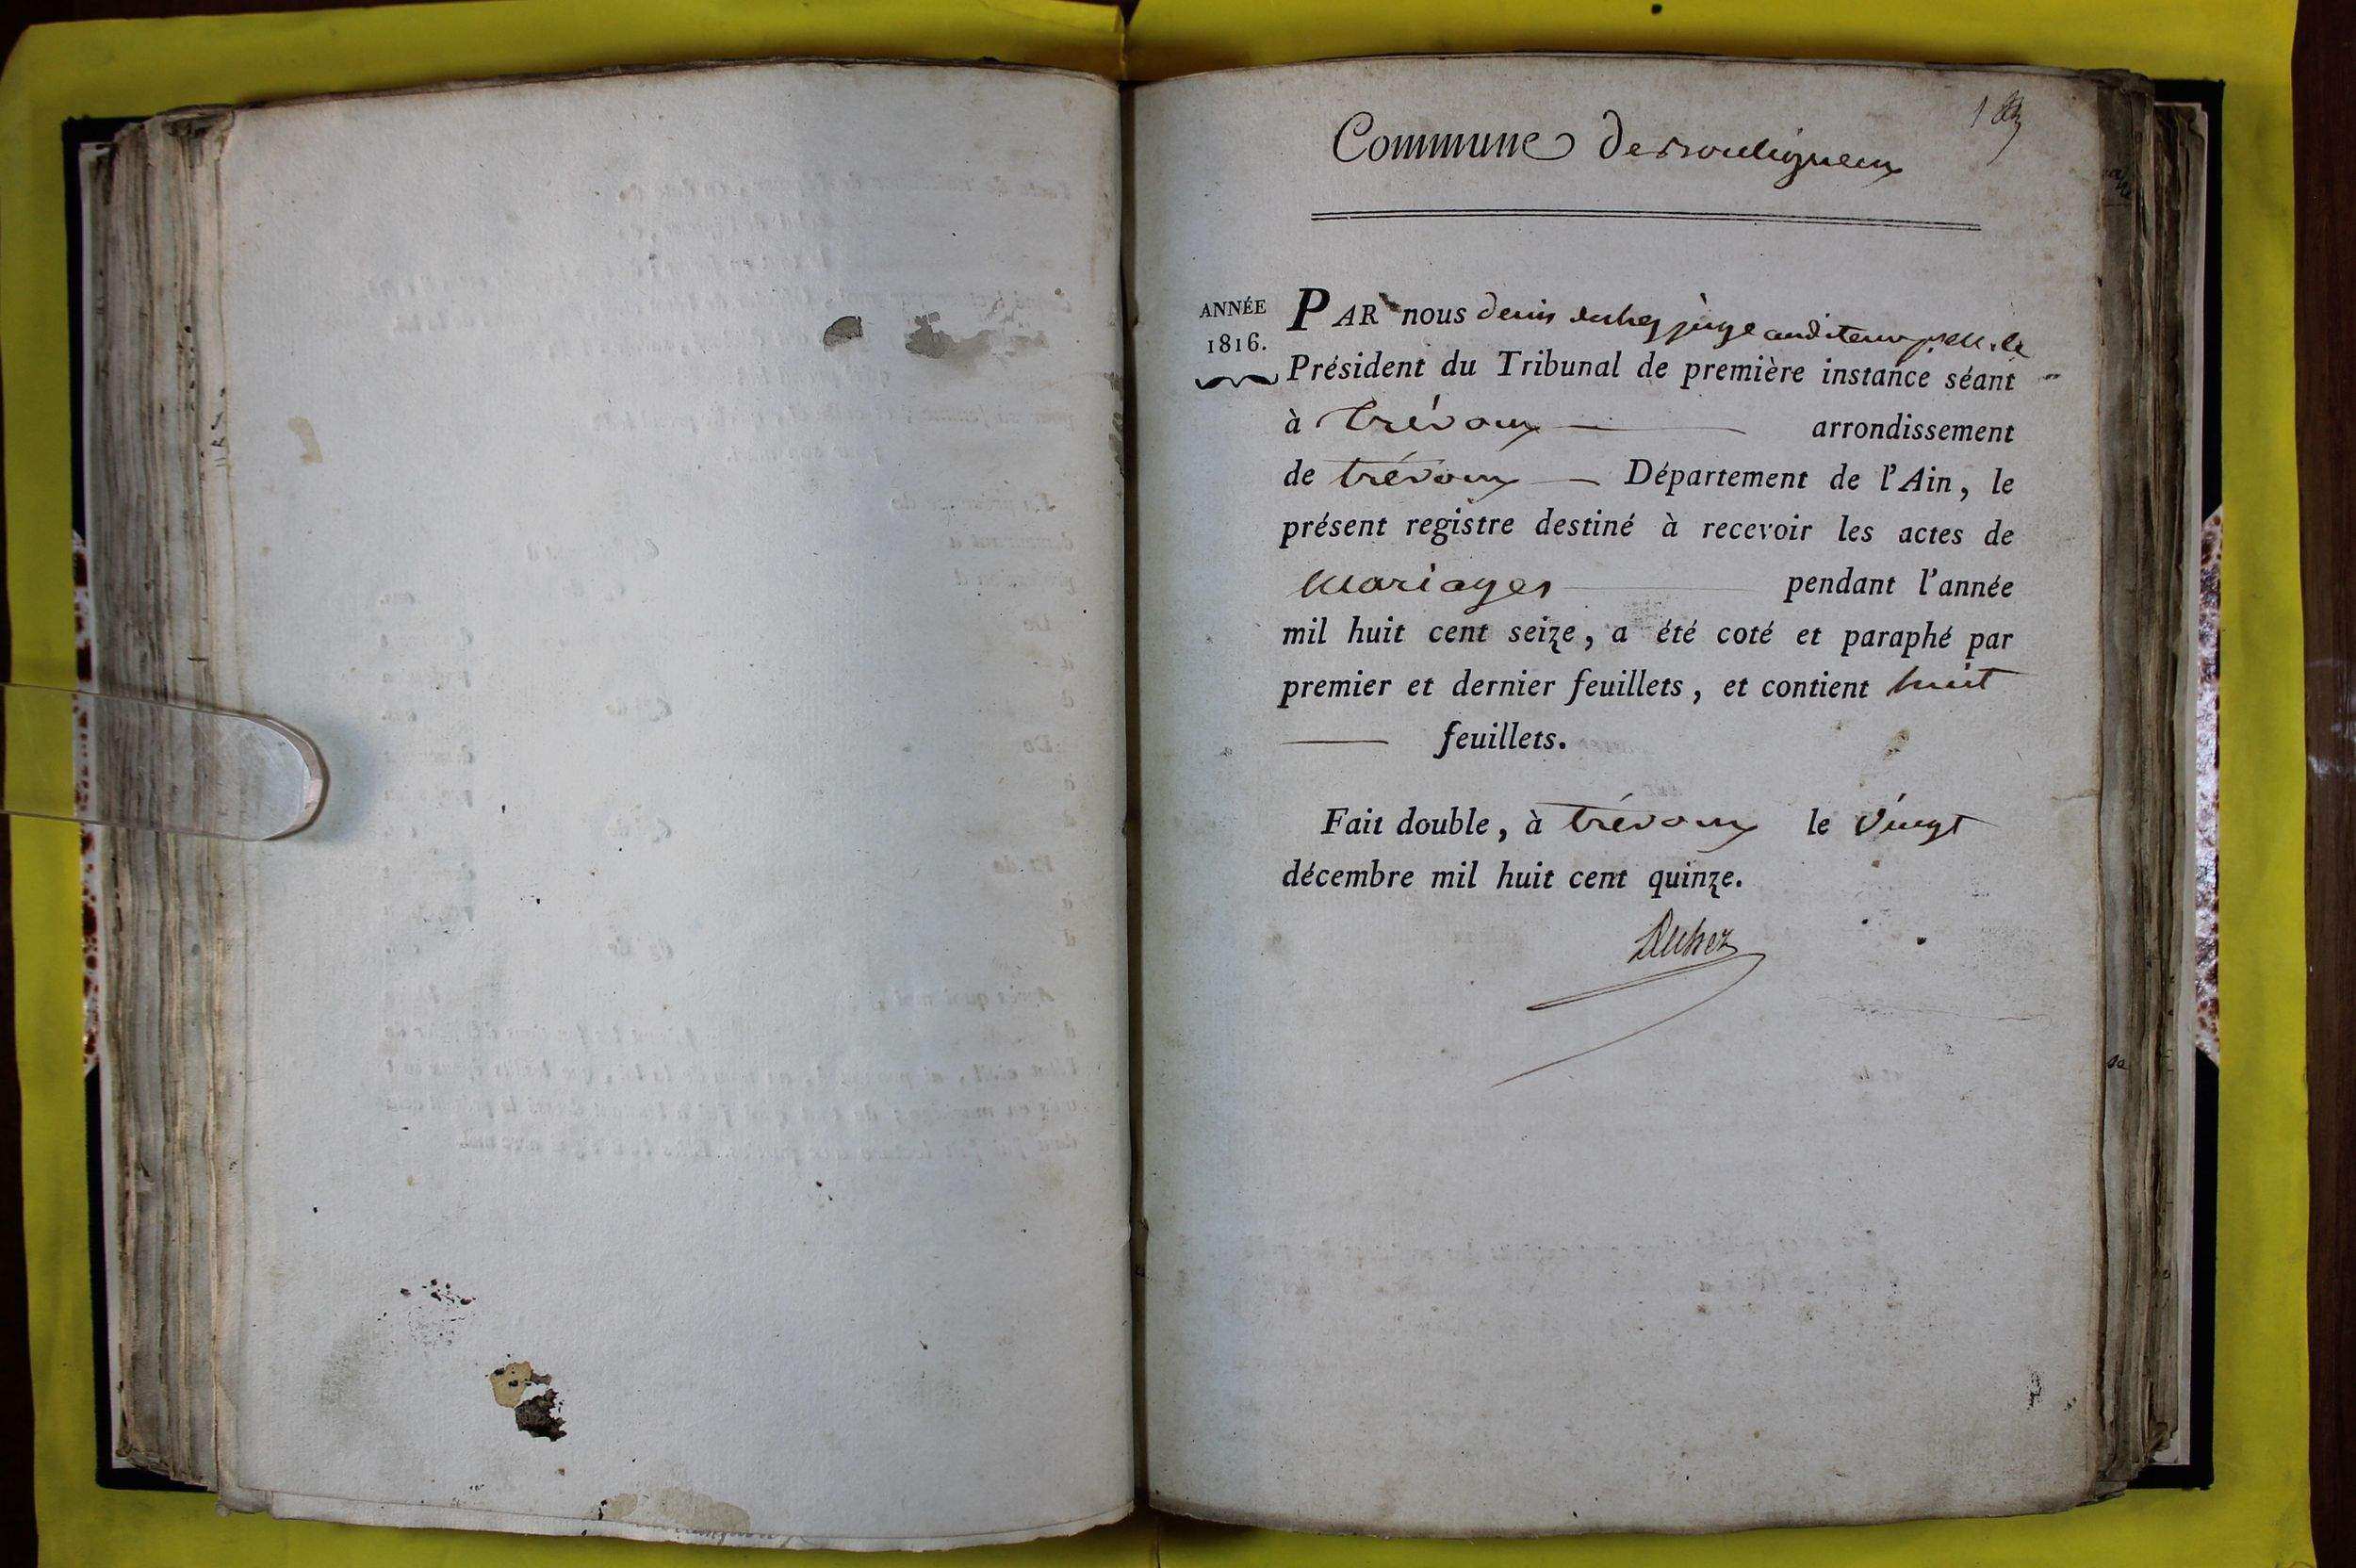 Commune de Bouligneux
ANNÉE
1816.
PAR nous denis duhez juge auditeur pour le
Président du Tribunal de première instance séant
à trévoux arrondissement
de trévoux Département de l'Ain, le
présent registre destiné à recevoir les actes de
mariages pendant l'année
mil huit cent seize, a été coté et paraphé par
premier et dernier feuillets, et contient huit
feuillets.
Fait double, à trévoux le vingt
décembre mil huit cent quinze.
Duhez